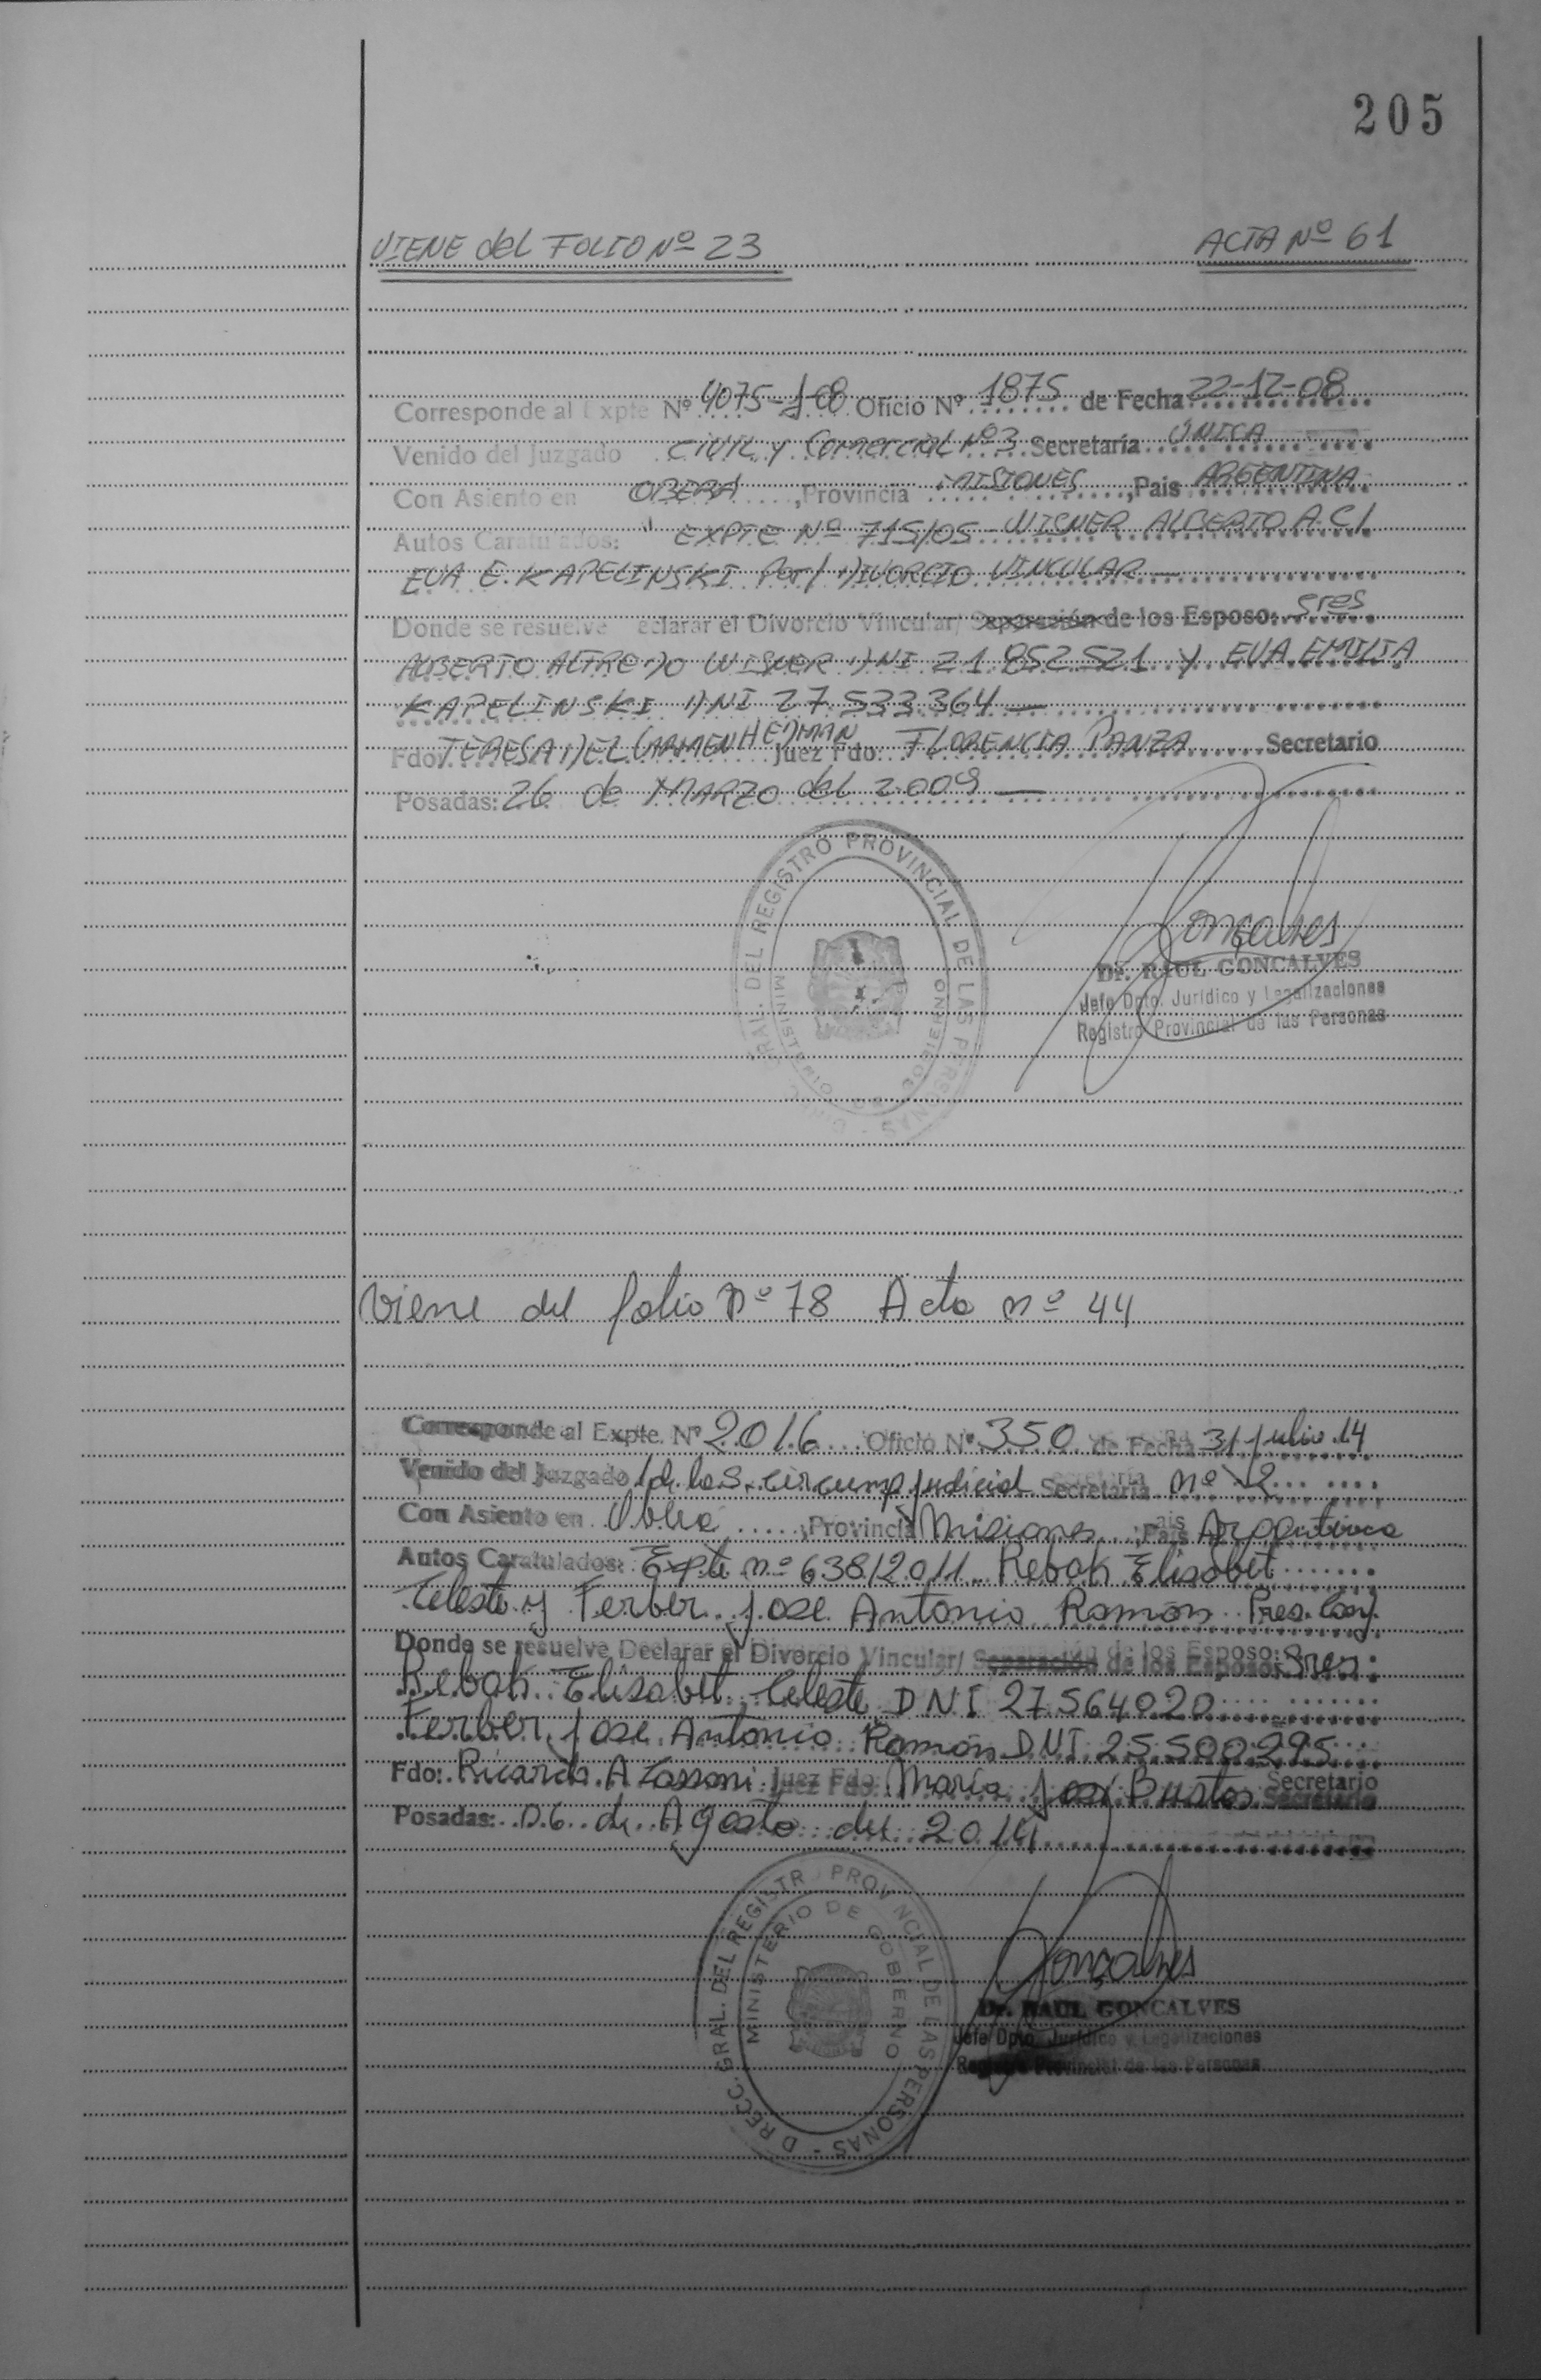 205
VIENE del FOLIO Nº 23 ACTA Nº 61
Corresponde al Expte Nº 4075-J-08 Oficio Nº 1875 de Fecha 22-12-08
Venido del Juzgado CIVIL y Comercial Nº 3 Secretaría UNICA
Con Asiento en OBERA, Provincia MISIONES, Pais ARGENTINA
Autos Caratulados: EXPTE Nº 715/05 WISNER ALBERTO A. C/
EVA E. KAPELINSKI Por/ DIVORCIO VINCULAR —
Donde se resuelve eclarar el Divorcio Vincular/ Separación de los Esposo: Sres
ALBERTO ALFREDO WISNER DNI 21 852 521 y EVA EMILIA
KAPELINSKI DNI 27.533.364 —
Fdo: TERESA DEL CARMEN HEDMAN Juez Fdo: FLORENCIA PANZA Secretario
Posadas: 26 de MARZO del 2009 —
GRAL. DEL REGISTRO PROVINCIAL DE LAS PERSONAS
MINISTERIO GOBIERNO
Gonçalves
Dr. RAUL GONCALVES
Jefe Dpto. Jurídico y Legalizaciones
Registro Provincial de las Personas
Viene del folio Nº 78 Acta nº 44
Corresponde al Expte. Nº 2016 Oficio Nº 350 de Fecha 31 julio 14
Venido del Juzgado 1 de la S. circump judicial Secretaría nº 2
Con Asiento en Obera, Provincia Misiones, Pais Argentina
Autos Caratulados: Expte nº 638/2011 Rebak Elisabet
Celeste y Ferber Jose Antonio Ramon Pres. Conj.
Donde se resuelve Declarar el Divorcio Vincular/ Separación de los Esposo: Sres:
Rebak Elisabet Celeste DNI 27.564020
Ferber Jose Antonio Ramon DNI 25500295
Fdo: Ricardo A Cassoni Juez Fdo: Maria José Bustos Secretario
Posadas: 06 de Agosto del 2014
D RECC. GRAL. DEL REGISTR PROVINCIAL DE LAS PERSONAS -
MINISTERIO DE GOBIERNO
Gonçalves
Dr. RAUL GONCALVES
Jefe Dpto. Jurídico y Legalizaciones
Registro Provincial de las Personas